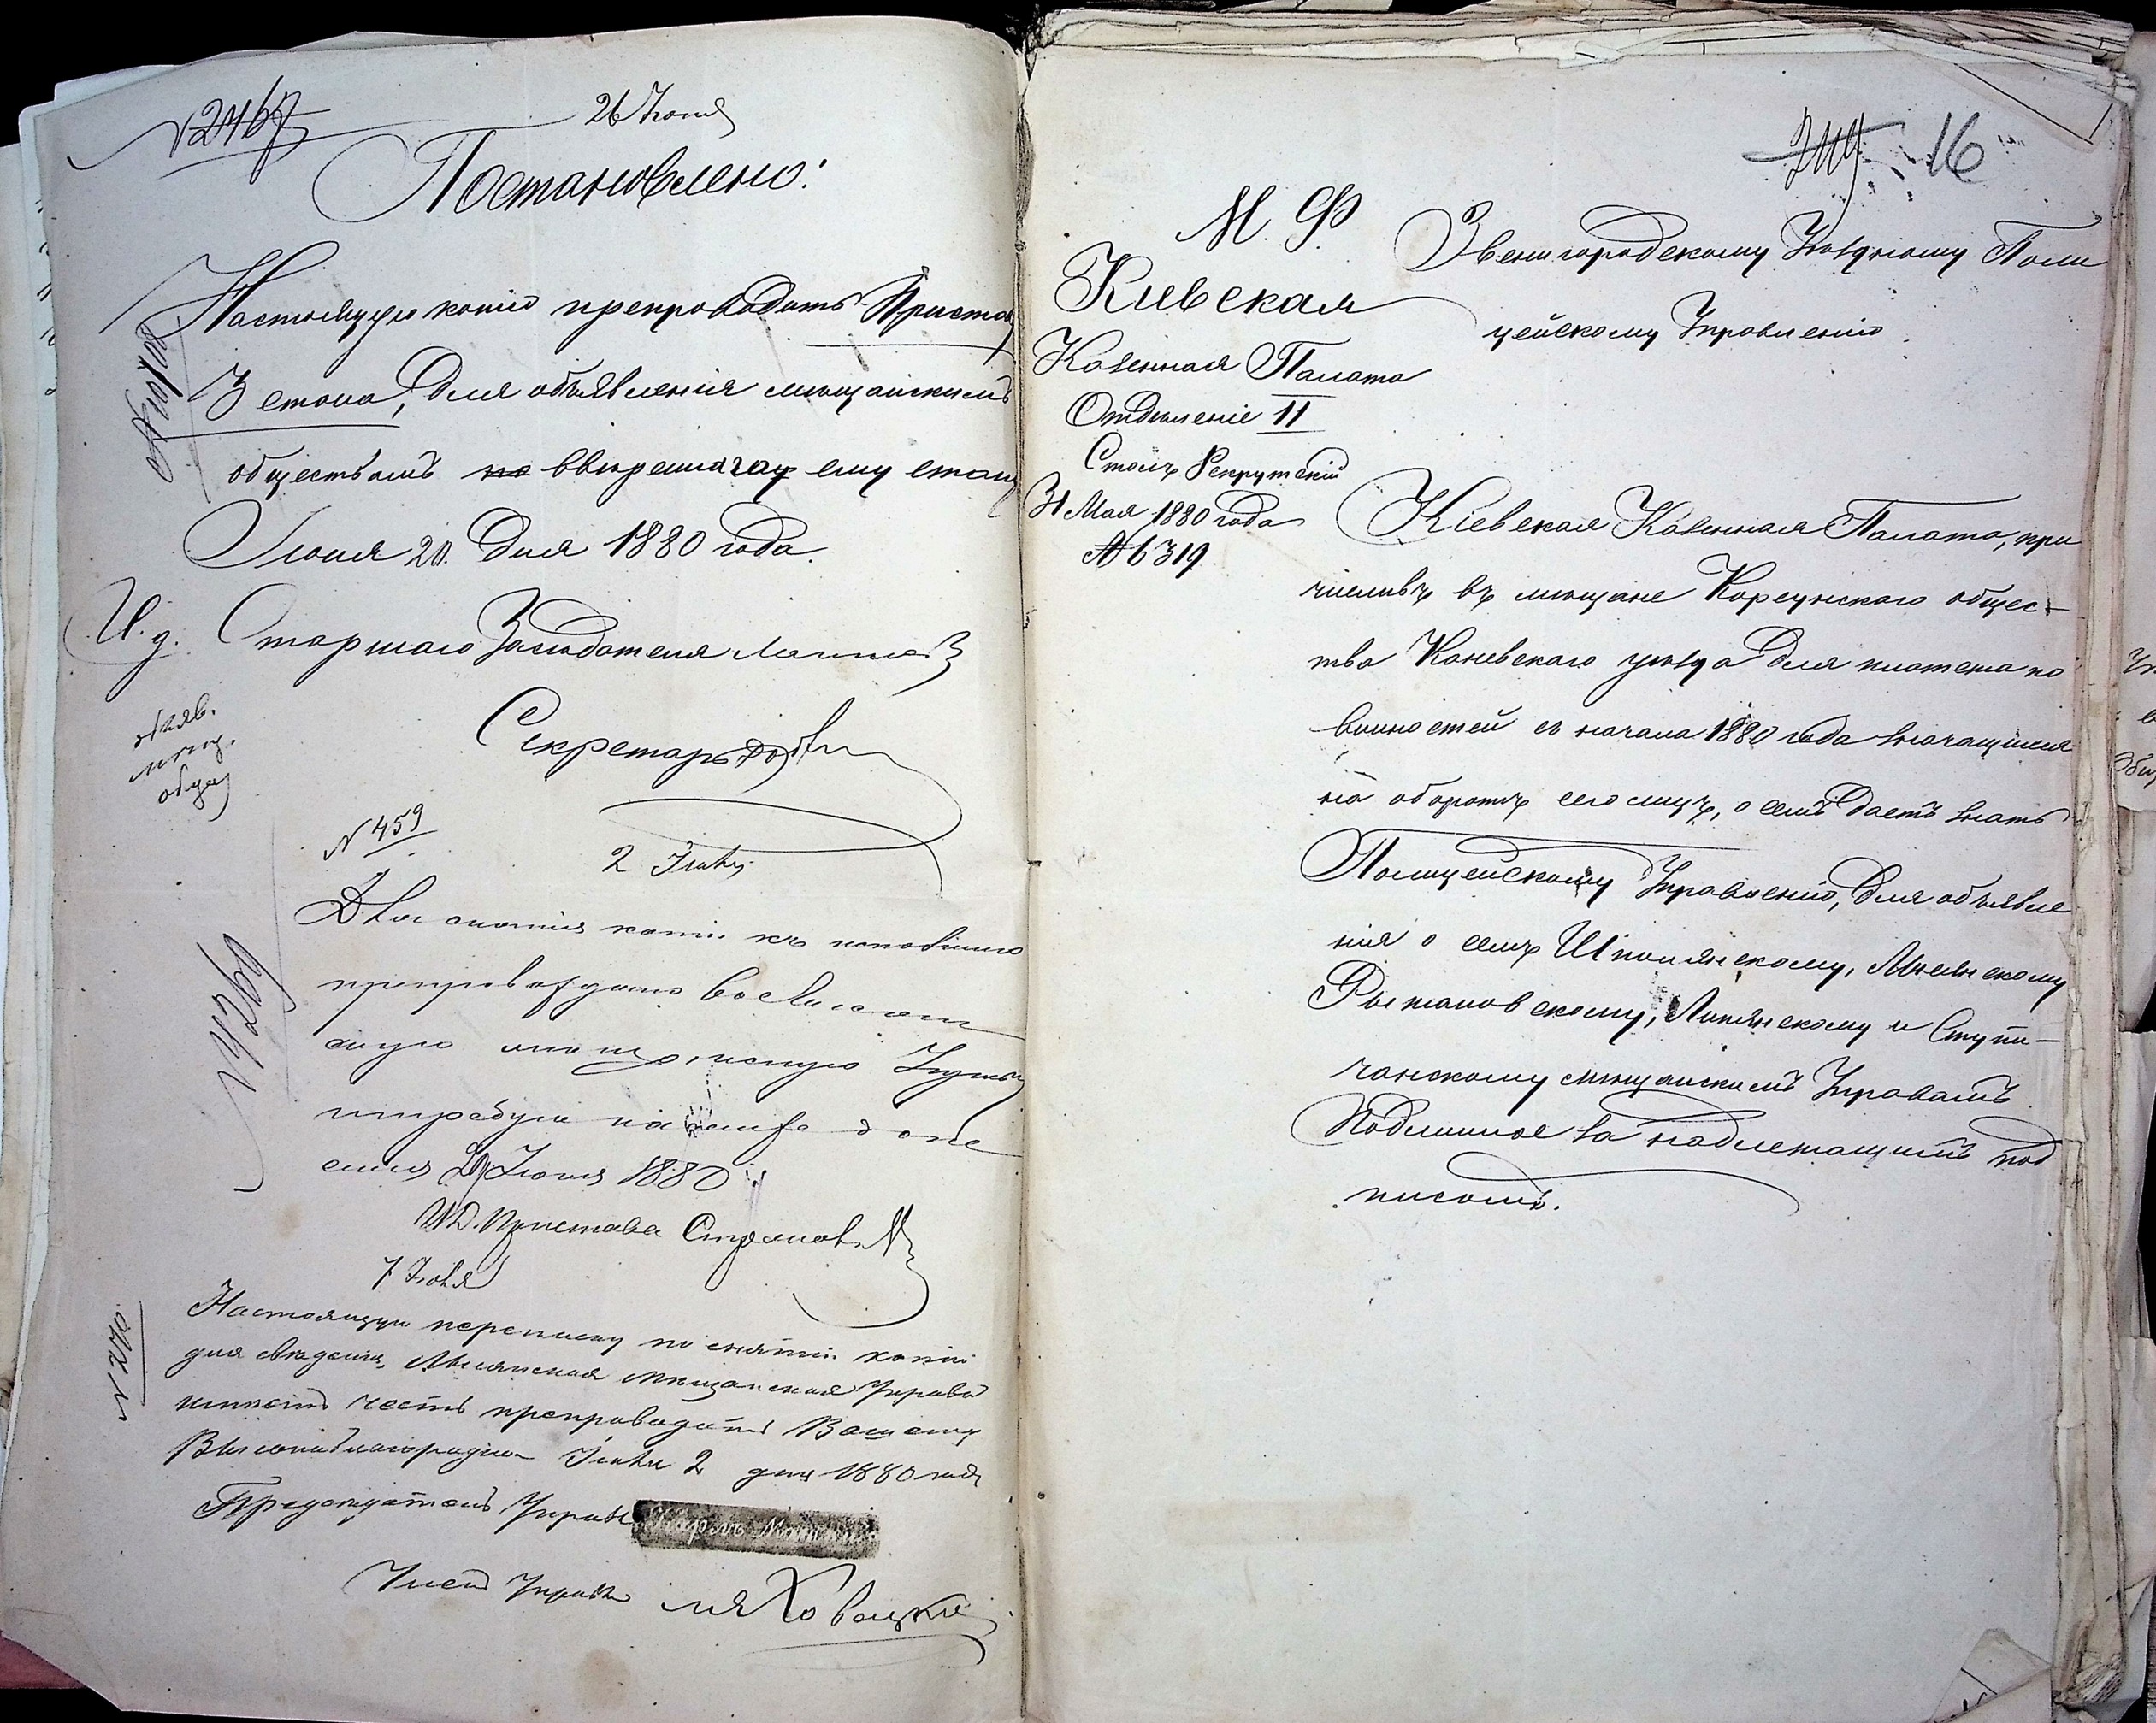 26 Июня
Постановлено:
Настоящую копію препроводить Приставу
3 стана, для объявленія мѣщанскимъ
обществамъ ему стану
Іюня 20 дня 1880 года.
И. д. Старшаго Засѣдателя
Секретарь
объяв.
мѣщ.
общ
№ 459
2 Іюля
Для снятія копіи къ исполненію
препровождаю во
скую мѣщанскую Управу
сенія 29 Іюня 1880
И.Д. Пристава
7 Іюля
№ 270
Настоящую переписку по снятіи копіи
для свѣденія, Мѣщанская Управа
имѣетъ честь препроводить Вашему
Высокоблагородію Іюля 2 дня 1880 года
Предсѣдатель Управы
Членъ Управы
16
М. Ф.
Кіевская
Казенная Палата
Отдѣленіе II
Столъ Рекрутскій
31 Мая 1880 года
№ 6319
Звенигородскому Уѣздному Поли
цейскому Управленію
Кіевская Казенная Палата, при
числивъ въ мѣщане Корсунскаго общес-
тва Каневскаго уѣзда для платежа по
винностей съ начала 1880 года значащихся
на оборотѣ сего лицъ, о семъ даетъ знать
Полицейскому Управленію, для объявле
нія о семъ Шполянскому, Лысянскому
Рыжановскому, Липянскому и Ступи-
чанскому мѣщанскимъ Управамъ
Подлинное за надлежащимъ под
писомъ.